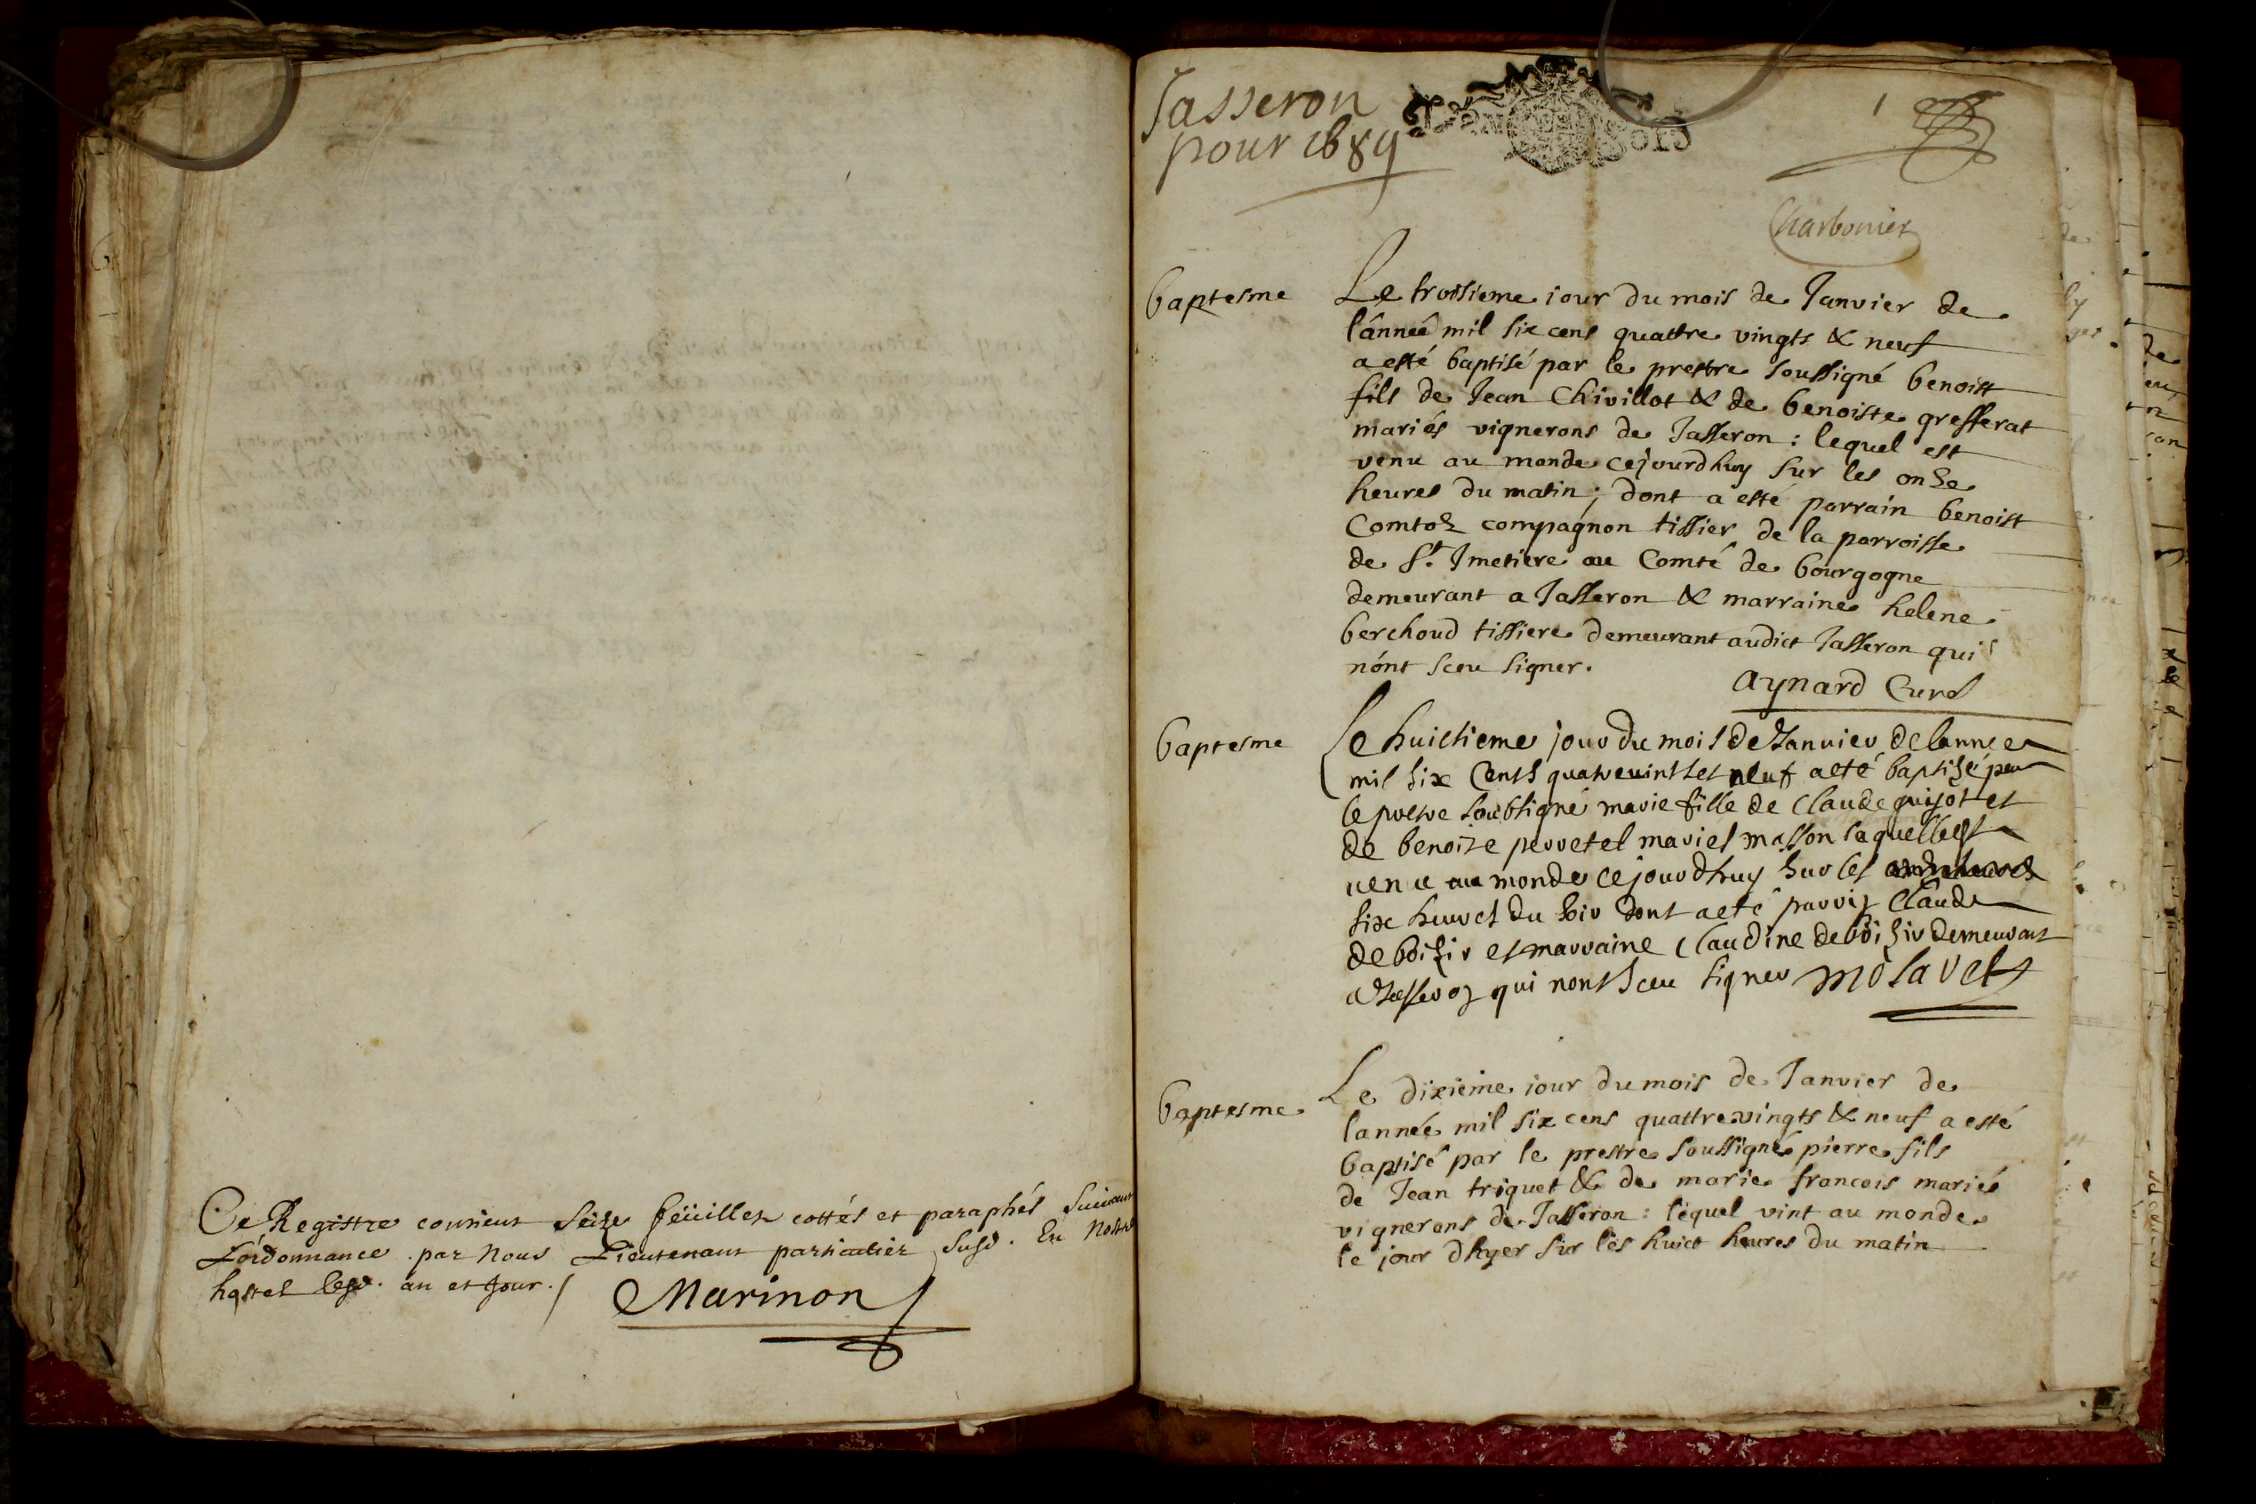 Ce Registre contient Seize feüillets cottés et paraphés Suivant
L'ordonnance par Nous Lieutenant particulier susd. En Nostre
hostel lesd. an et Jour./
Marinon
Jasseron
pour 1689
Deux Sols
1
Charbonier
baptesme
Le troisieme iour du mois de Janvier de
l'année mil six cens quattre vingts & neuf
a esté baptisé par le prestre soussigné benoist
fils de Jean Chivillot & de benoiste grefferat
mariés vignerons de Jasseron : lequel est
venu au monde cejourdhuy sur les onze
heures du matin ; dont a esté parrain benoist
Comtoz compagnon tissier de la parroisse
de St. Jmetiere au Comté de bourgogne
demeurant a Jasseron & marraine helene
berchoud tissiere demeurant audict Jasseron qui
n'ont sceu signer.
Aynard Curé
baptesme
Le huictieme jour du mois de Janvier de lannee
mil six Cents quatrevints et neuf a eté baptisé par
le pretre soubsigné marie fille de Claude guijot et
de benoite perretel mariés masson laquelle est
venue au monde cejourdhuy sur les
six heures du soir dont a eté parrin Claude
deboisir et marraine Claudine deboisir demeurant
a Jasseron qui nont sceu signer Molavel
baptesme
Le dixieme iour du mois de Janvier de
lannée mil six cens quattre vingts & neuf a esté
baptisé par le prestre soussigné pierre fils
de Jean triquet & de marie francois mariés
vignerons de Jasseron : lequel vint au monde
le jour dhyer sur les huict heures du matin